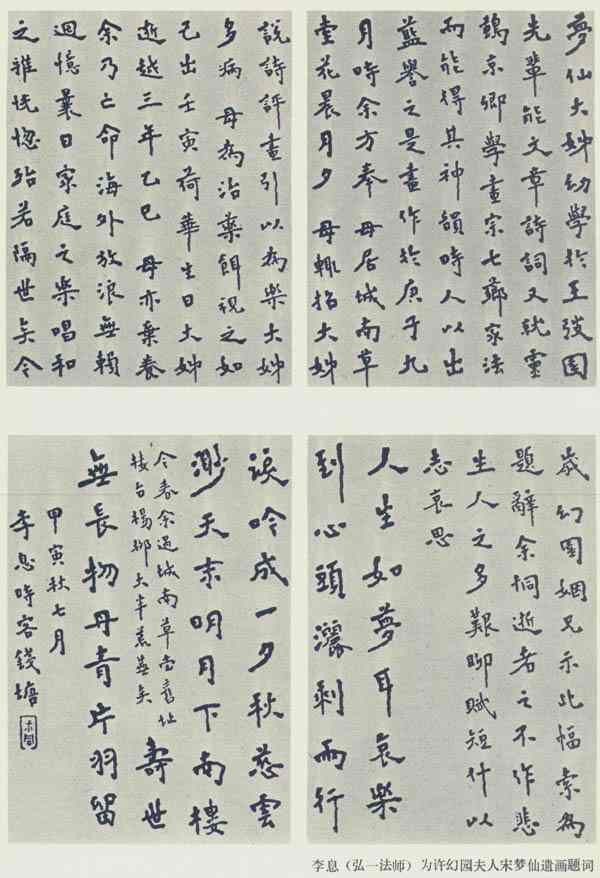 夢仙大姊幼學於王弢園
先輩能文章詩詞又就靈
鶼京卿學畫宗七薌家法
而能得其神韻時人以出
藍譽之是畫作於庚子九
月時余方奉 母居城南草
堂花晨月夕 母輒招大姊
說詩評畫引以為樂大姊
多病 母為治藥餌視之如
己出壬寅荷華生日大姊
逝越三年乙巳 母亦棄養
余乃亡命海外放浪無賴
迴憶曩日家庭之樂唱和
之雅恍惚殆若隔世矣今
歲幻園姻兄示此幅索為
題辭余恫逝者之不作悲
生人之多艱聊賦短什以
志哀思
人生如夢耳哀樂
到心頭灑剩兩行
淚吟成一夕秋慈雲
渺天末明月下南樓
今春余過城南草堂舊址
樓台楊柳大半荒蕪矣
壽世
無長物丹青片羽留
甲寅秋七月
李息時客錢塘
李息（弘一法师）为许幻园夫人宋梦仙遗画题词